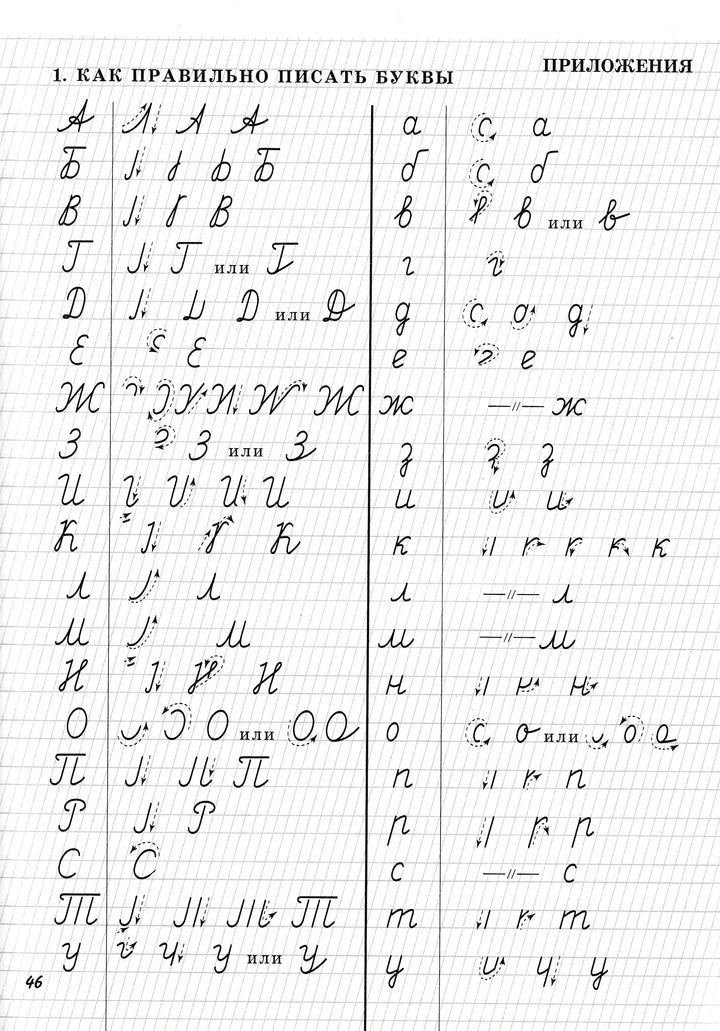 ПРИЛОЖЕНИЯ
1. КАК ПРАВИЛЬНО ПИСАТЬ БУКВЫ
А А А а с а
Б Б б с б
В В в в или в
Г Г или Г г г
Д Д или Д д с а д
Е Е е е
Ж Ж ж —//— ж
З З или З з з
И И и и
К К к к
Л Л л —//— л
М М м —//— м
Н Н н н
О О или О О о с о или о о
П П п п
Р Р р р
С С с —//— с
Т Т т т
У У или У у у
46